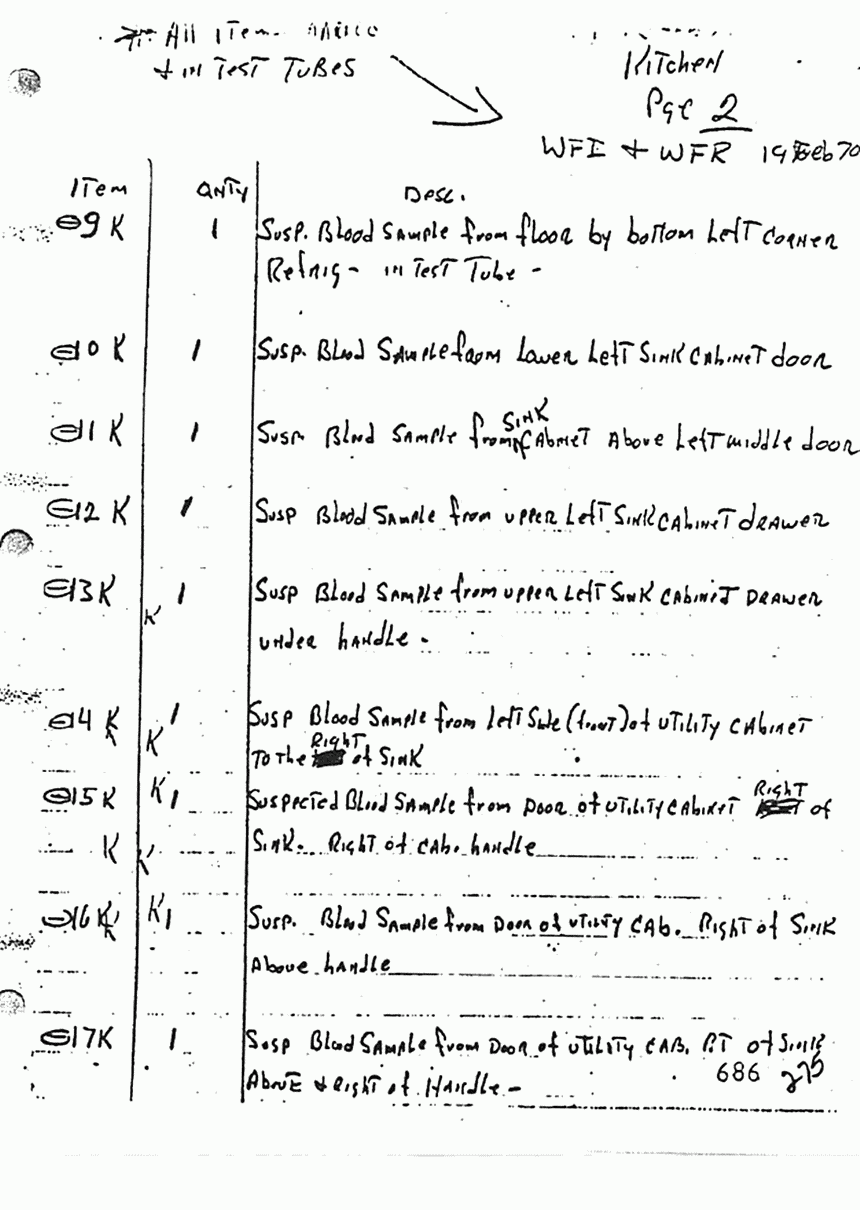 * All Item
+ in Test Tubes
Kitchen
Pge 2
WFI + WFR 19 Feb 70
Item QNTY Desc.
D-9 K 1 Susp. Blood Sample from floor by bottom Left Corner
Refrig - in Test Tube -
D-10 K 1 Susp. Blood Sample from Lower Left Sink Cabinet door
D-11 K 1 Susp. Blood Sample from Sink Cabinet Above Left middle door
D-12 K 1 Susp Blood Sample from upper Left Sink Cabinet drawer
D-13 K 1 Susp Blood Sample from upper Left Sink Cabinet Drawer
K under handle -
D-14 K 1 Susp Blood Sample from left Side (front) of Utility Cabinet
K To the Right of Sink
D-15 K K 1 Suspected Blood Sample from Door of Utility Cabinet Right of
K K Sink. Right of Cab. handle
D-16 K K 1 Susp. Blood Sample from Door of Utility Cab. Right of Sink
Above handle
D-17 K 1 Susp Blood Sample from Door of Utility Cab. RT of Sink
Above + Right of Handle -
686 275